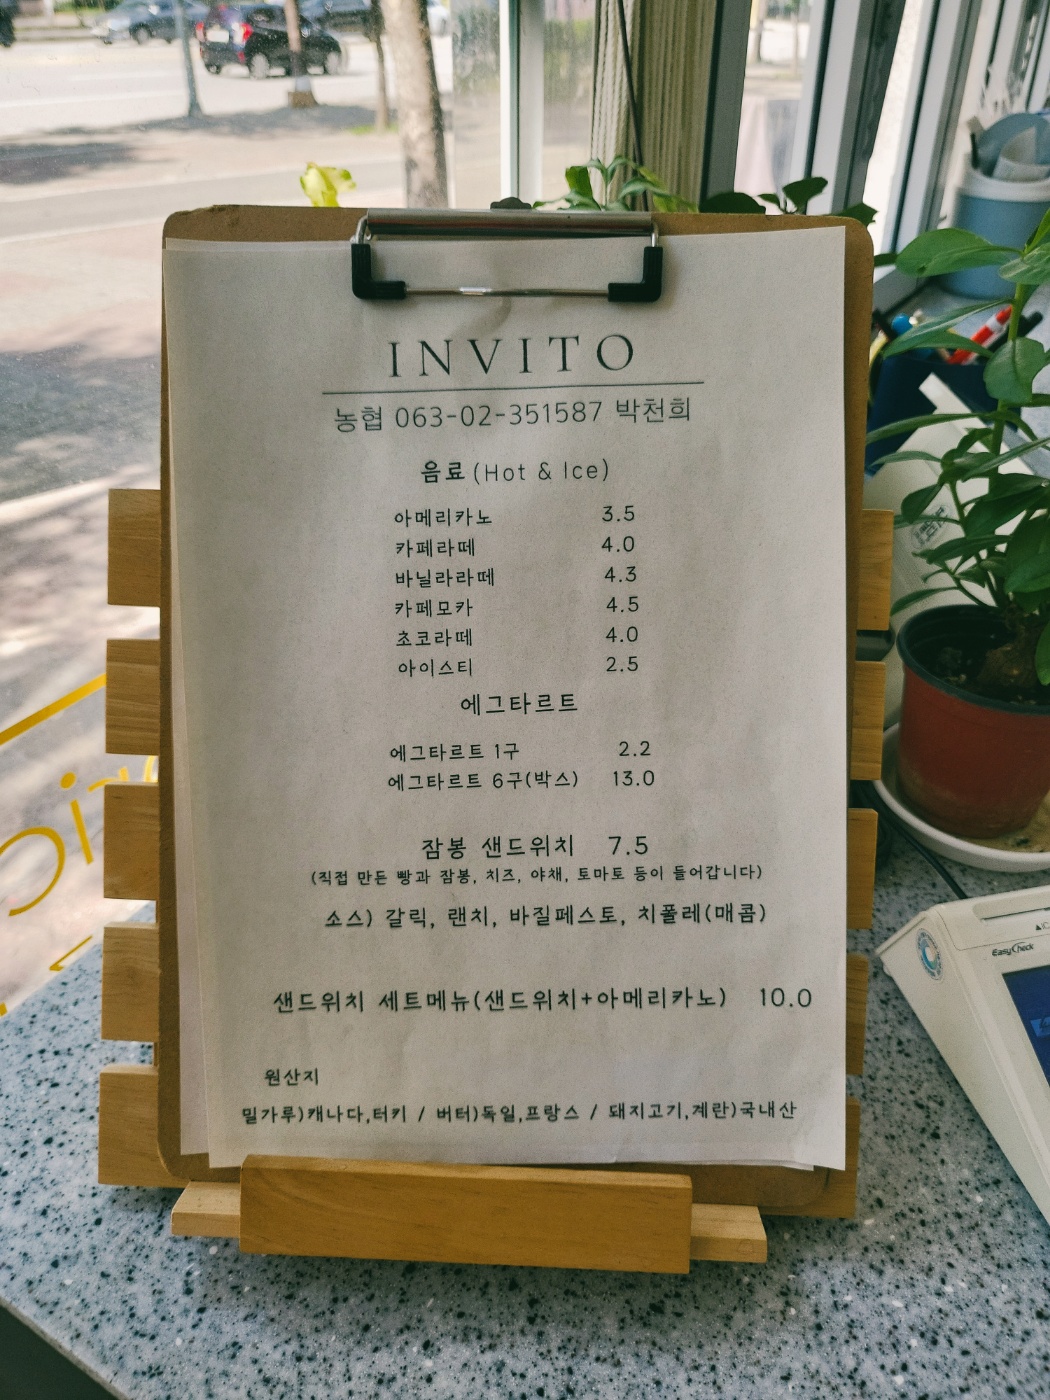 INVITO
농협 063-02-351587 박천희
음료(Hot & Ice)
아메리카노 3.5
카페라떼 4.0
바닐라라떼 4.3
카페모카 4.5
초코라떼 4.0
아이스티 2.5
에그타르트
에그타르트 1구 2.2
에그타르트 6구(박스) 13.0
잠봉 샌드위치 7.5
(직접 만든 빵과 잠봉, 치즈, 야채, 토마토 등이 들어갑니다)
소스) 갈릭, 랜치, 바질페스토, 치폴레(매콤)
샌드위치 세트메뉴(샌드위치+아메리카노) 10.0
원산지
밀가루)캐나다,터키 / 버터)독일,프랑스 / 돼지고기,계란)국내산
EasyCheck